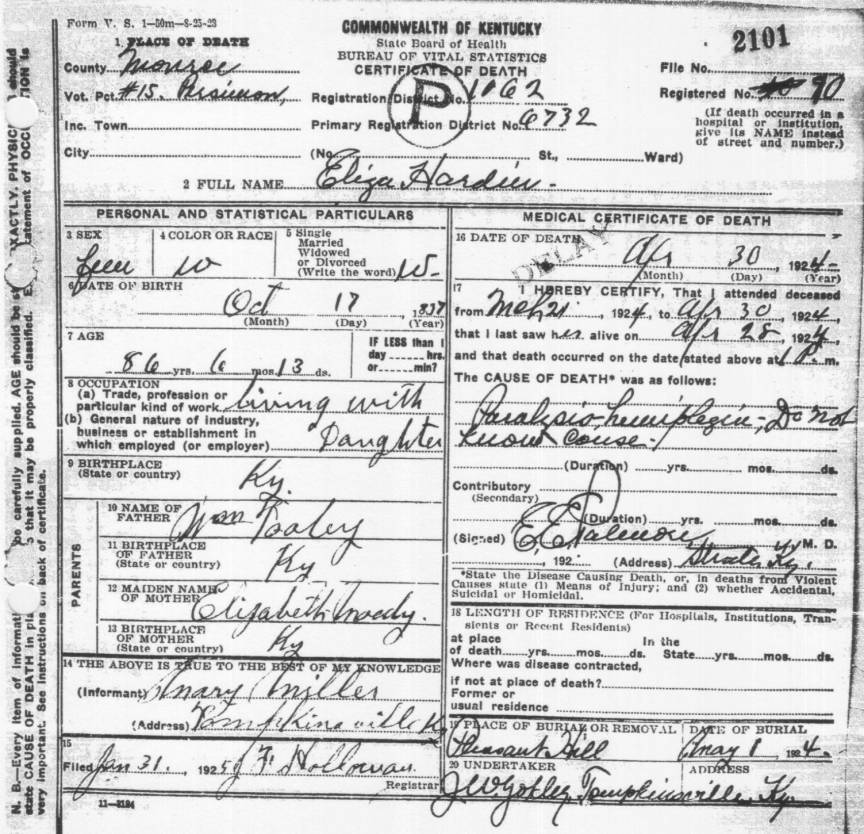 Form V. S. 1—50m—8-25-23
COMMONWEALTH OF KENTUCKY
State Board of Health
BUREAU OF VITAL STATISTICS
CERTIFICATE OF DEATH
2101
1 PLACE OF DEATH
County Monroe
Vot. Pct. #15. Persimmon,
Inc. Town
City
Registration District No. 1062
P
Primary Registration District No. 6732
File No.
Registered No. 90
(If death occurred in a
hospital or institution,
give its NAME instead
of street and number.)
(No. St., Ward)
2 FULL NAME Eliza Hardin
PERSONAL AND STATISTICAL PARTICULARS
3 SEX
Fem
4 COLOR OR RACE
W
5 Single
Married
Widowed
or Divorced
(Write the word) W-
6 DATE OF BIRTH
Oct 17 1837
(Month) (Day) (Year)
7 AGE
86 yrs. 6 mos. 13 ds.
IF LESS than 1
day hrs.
or min?
8 OCCUPATION
(a) Trade, profession or
particular kind of work Living with
(b) General nature of industry,
business or establishment in
which employed (or employer) Daughter
9 BIRTHPLACE
(State or country) Ky.
PARENTS
10 NAME OF
FATHER Wm Tooley
11 BIRTHPLACE
OF FATHER
(State or country) Ky
12 MAIDEN NAME
OF MOTHER Elizabeth Moody.
13 BIRTHPLACE
OF MOTHER
(State or country) Ky
14 THE ABOVE IS TRUE TO THE BEST OF MY KNOWLEDGE
(Informant) Mary Miller
(Address) Tompkinsville Ky
15
Filed Jan 31, 1925 J F Holloway
Registrar
11—3184
MEDICAL CERTIFICATE OF DEATH
DELAY
16 DATE OF DEATH
Apr 30, 1924
(Month) (Day) (Year)
17 I HEREBY CERTIFY, That I attended deceased
from Mch 21, 1924, to Apr 30, 1924
that I last saw her alive on Apr 28, 1924,
and that death occurred on the date stated above at 1 P. m.
The CAUSE OF DEATH* was as follows:
Paralysis, hemiplegia, Do not
know cause.
(Duration) yrs. mos. ds.
Contributory
(Secondary)
(Duration) yrs. mos. ds.
(Signed) E. E. Palmore M. D.
, 192 (Address) Strode Ky.
*State the Disease Causing Death, or, in deaths from Violent
Causes state (1) Means of Injury; and (2) whether Accidental,
Suicidal or Homicidal.
18 LENGTH OF RESIDENCE (For Hospitals, Institutions, Tran-
sients or Recent Residents)
at place In the
of death yrs. mos. ds. State yrs. mos. ds.
Where was disease contracted,
if not at place of death?
Former or
usual residence
19 PLACE OF BURIAL OR REMOVAL
Pleasant Hill
DATE OF BURIAL
May 1, 1924.
20 UNDERTAKER
ADDRESS
Tompkinsville, Ky.
N. B.—Every item of informati
be carefully supplied. AGE should be st
XACTLY. PHYSIC
should
state CAUSE OF DEATH in pla
so that it may be properly classified.
tatement of OCCU
TION is
very important. See instructions on back of certificate.